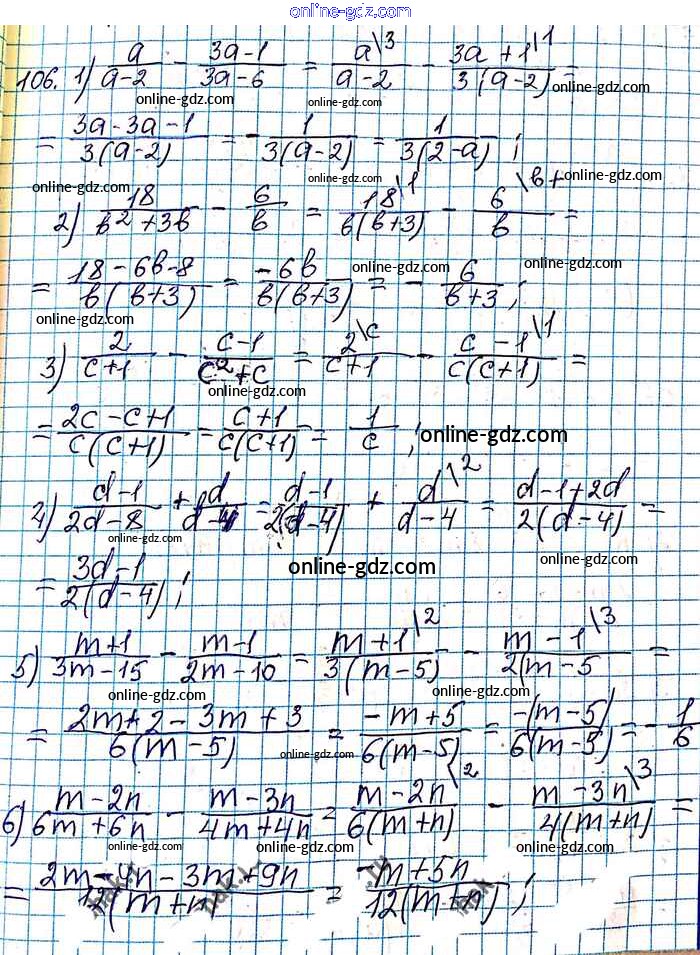 online-gdz.com
106. 1) a/(a-2) - (3a-1)/(3a-6) = a\3/(a-2) - (3a+1)\1/(3(a-2)) =
online-gdz.com online-gdz.com online-gdz.com
= (3a-3a-1)/(3(a-2)) = -1/(3(a-2)) = 1/(3(2-a));
online-gdz.com online-gdz.com online-gdz.com
2) 18/(b²+3b) - 6/b = 18\1/(b(b+3)) - 6\b+/b =
online-gdz.com
= (18-6b-8)/(b(b+3)) = -6b/(b(b+3)) = -6/(b+3);
online-gdz.com online-gdz.com
3) 2/(c+1) - (c-1)/(c²+c) = 2\c/(c+1) - (c-1)\1/(c(c+1)) =
online-gdz.com online-gdz.com
= (2c-c+1)/(c(c+1)) = (c+1)/(c(c+1)) = 1/c;
online-gdz.com
4) (d-1)/(2d-8) + d/(d-4) = (d-1)/(2(d-4)) + d\2/(d-4) = (d-1+2d)/(2(d-4)) =
online-gdz.com online-gdz.com online-gdz.com
= (3d-1)/(2(d-4));
online-gdz.com
5) (m+1)/(3m-15) - (m-1)/(2m-10) = (m+1)\2/(3(m-5)) - (m-1)\3/(2(m-5 =
online-gdz.com online-gdz.com
= (2m+2-3m+3)/(6(m-5)) = (-m+5)/(6(m-5)) = -(m-5)/(6(m-5)) = -1/6
online-gdz.com online-gdz.com
6) (m-2n)/(6m+6n) - (m-3n)/(4m+4n) = (m-2n)\2/(6(m+n)) - (m-3n)\3/(4(m+n)) =
online-gdz.com online-gdz.com
= (2m-4n-3m+9n)/(12(m+n)) = (-m+5n)/(12(m+n));
online-gdz.com online-gdz.com